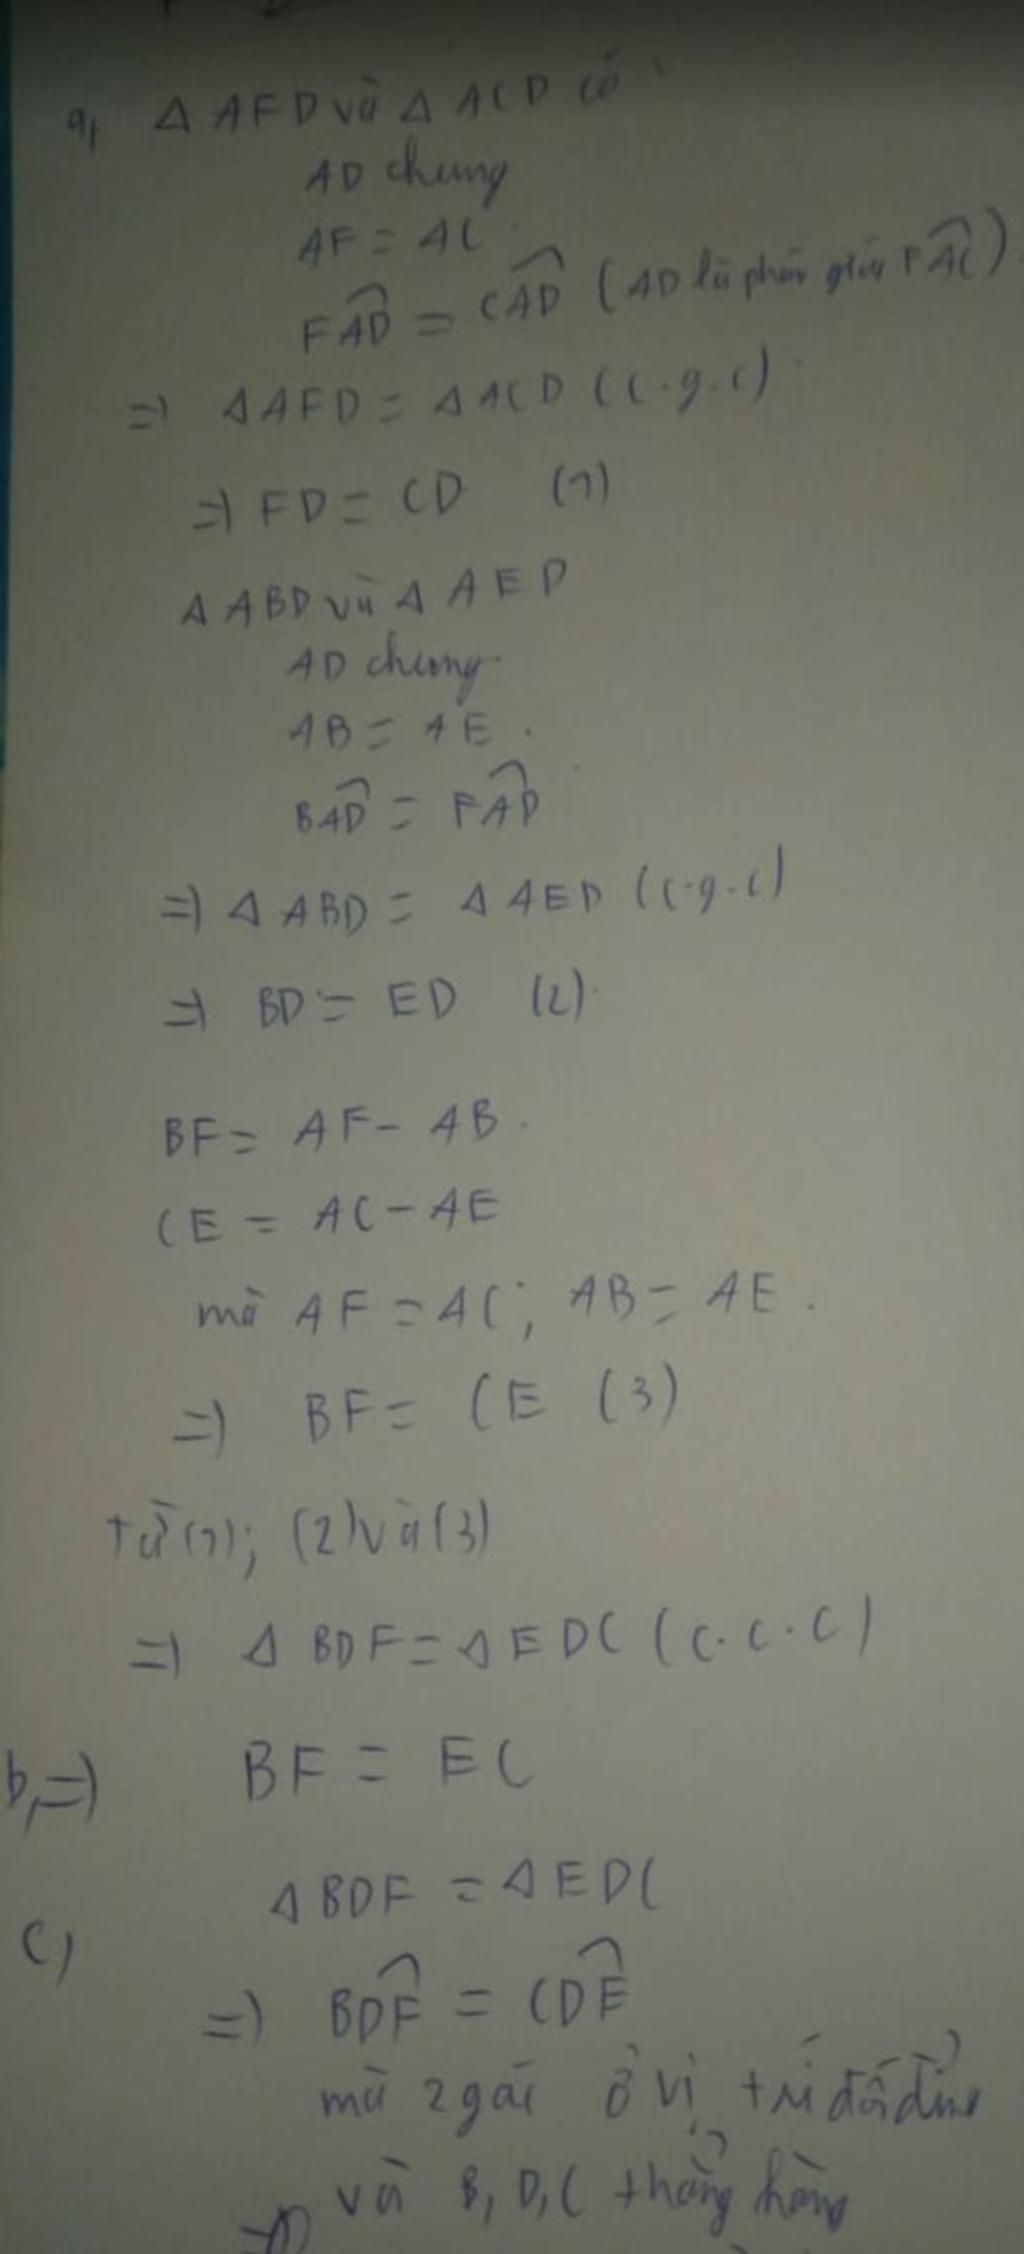 a, Δ AFD và Δ ACD có
AD chung
AF = AC
FAD̂ = CAD̂ (AD là phân giác FAĈ)
=> ΔAFD = ΔACD (c.g.c)
=> FD = CD (1)
ΔABD và Δ AED
AD chung
AB = AE.
BAD̂ = FAD̂
=> Δ ABD = Δ AED (c.g.c)
=> BD = ED (2).
BF = AF - AB.
CE = AC - AE
mà AF = AC; AB = AE.
=> BF = CE (3)
từ (1); (2) và (3)
=> Δ BDF = Δ EDC (c.c.c)
b, => BF = EC
Δ BDF = Δ EDC
c,
=> BDF̂ = CDÊ
mà 2 góc ở vị trí đối đỉnh
và B, D, C thẳng hàng